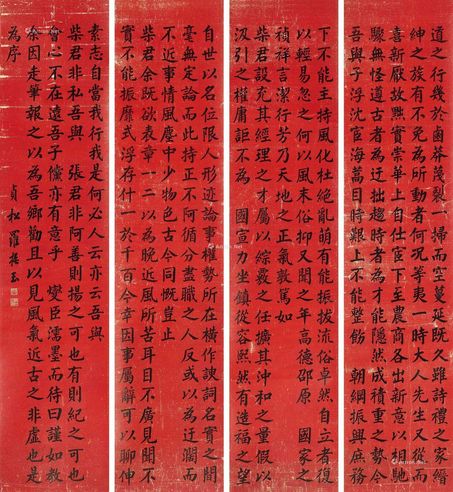 道之行幾於鹵莽蔑裂一掃而空蔓延既久雖詩禮之家縉
紳之族有不免為所動者何況等夷一時大人先生又從而
喜新厭故黜實崇華上自仕宦下至農商各出新意以相馳
驟無怪遵古者為迂拙趨時者為才能隱然成積重之勢今
吾與子浮沈宦海蒿目時艱上不能整飭 朝綱振興庶務
下不能主持風化杜絕亂萌有能振拔流俗卓然自立者復
以輕易忽之何以風末俗抑又聞之年高德邵原 國家之
禎祥言潔行芳乃天地之正氣敦篤如
柴君設充其經理之才屬以綜覈之任擴其沖和之量假以
汲引之權庸詎不為 國宣力坐鎮從容熙然有造福之望
自世以名位限人形迹論事權勢所在橫作諛詞名實之間
毫無定論而此持正不阿循分盡職之人反或以為迂濶而
不近事情風塵中少物色古今同慨豈止
柴君余既欲表章一二以為晚近風所苦耳目不廣見聞不
實不能振靡式浮存什一於千百今幸因事屬辭可以聊伸
素志自當我行我是何必人云亦云吾與
柴君非私吾與 張君非阿善則揚之可也有則紀之可也
會心不在遠吾子儻亦有意乎 燮臣濡墨而待曰謹如教
余因走筆報之以為吾鄉勸且以見風氣近古之非虛也是
為序
貞松羅振玉